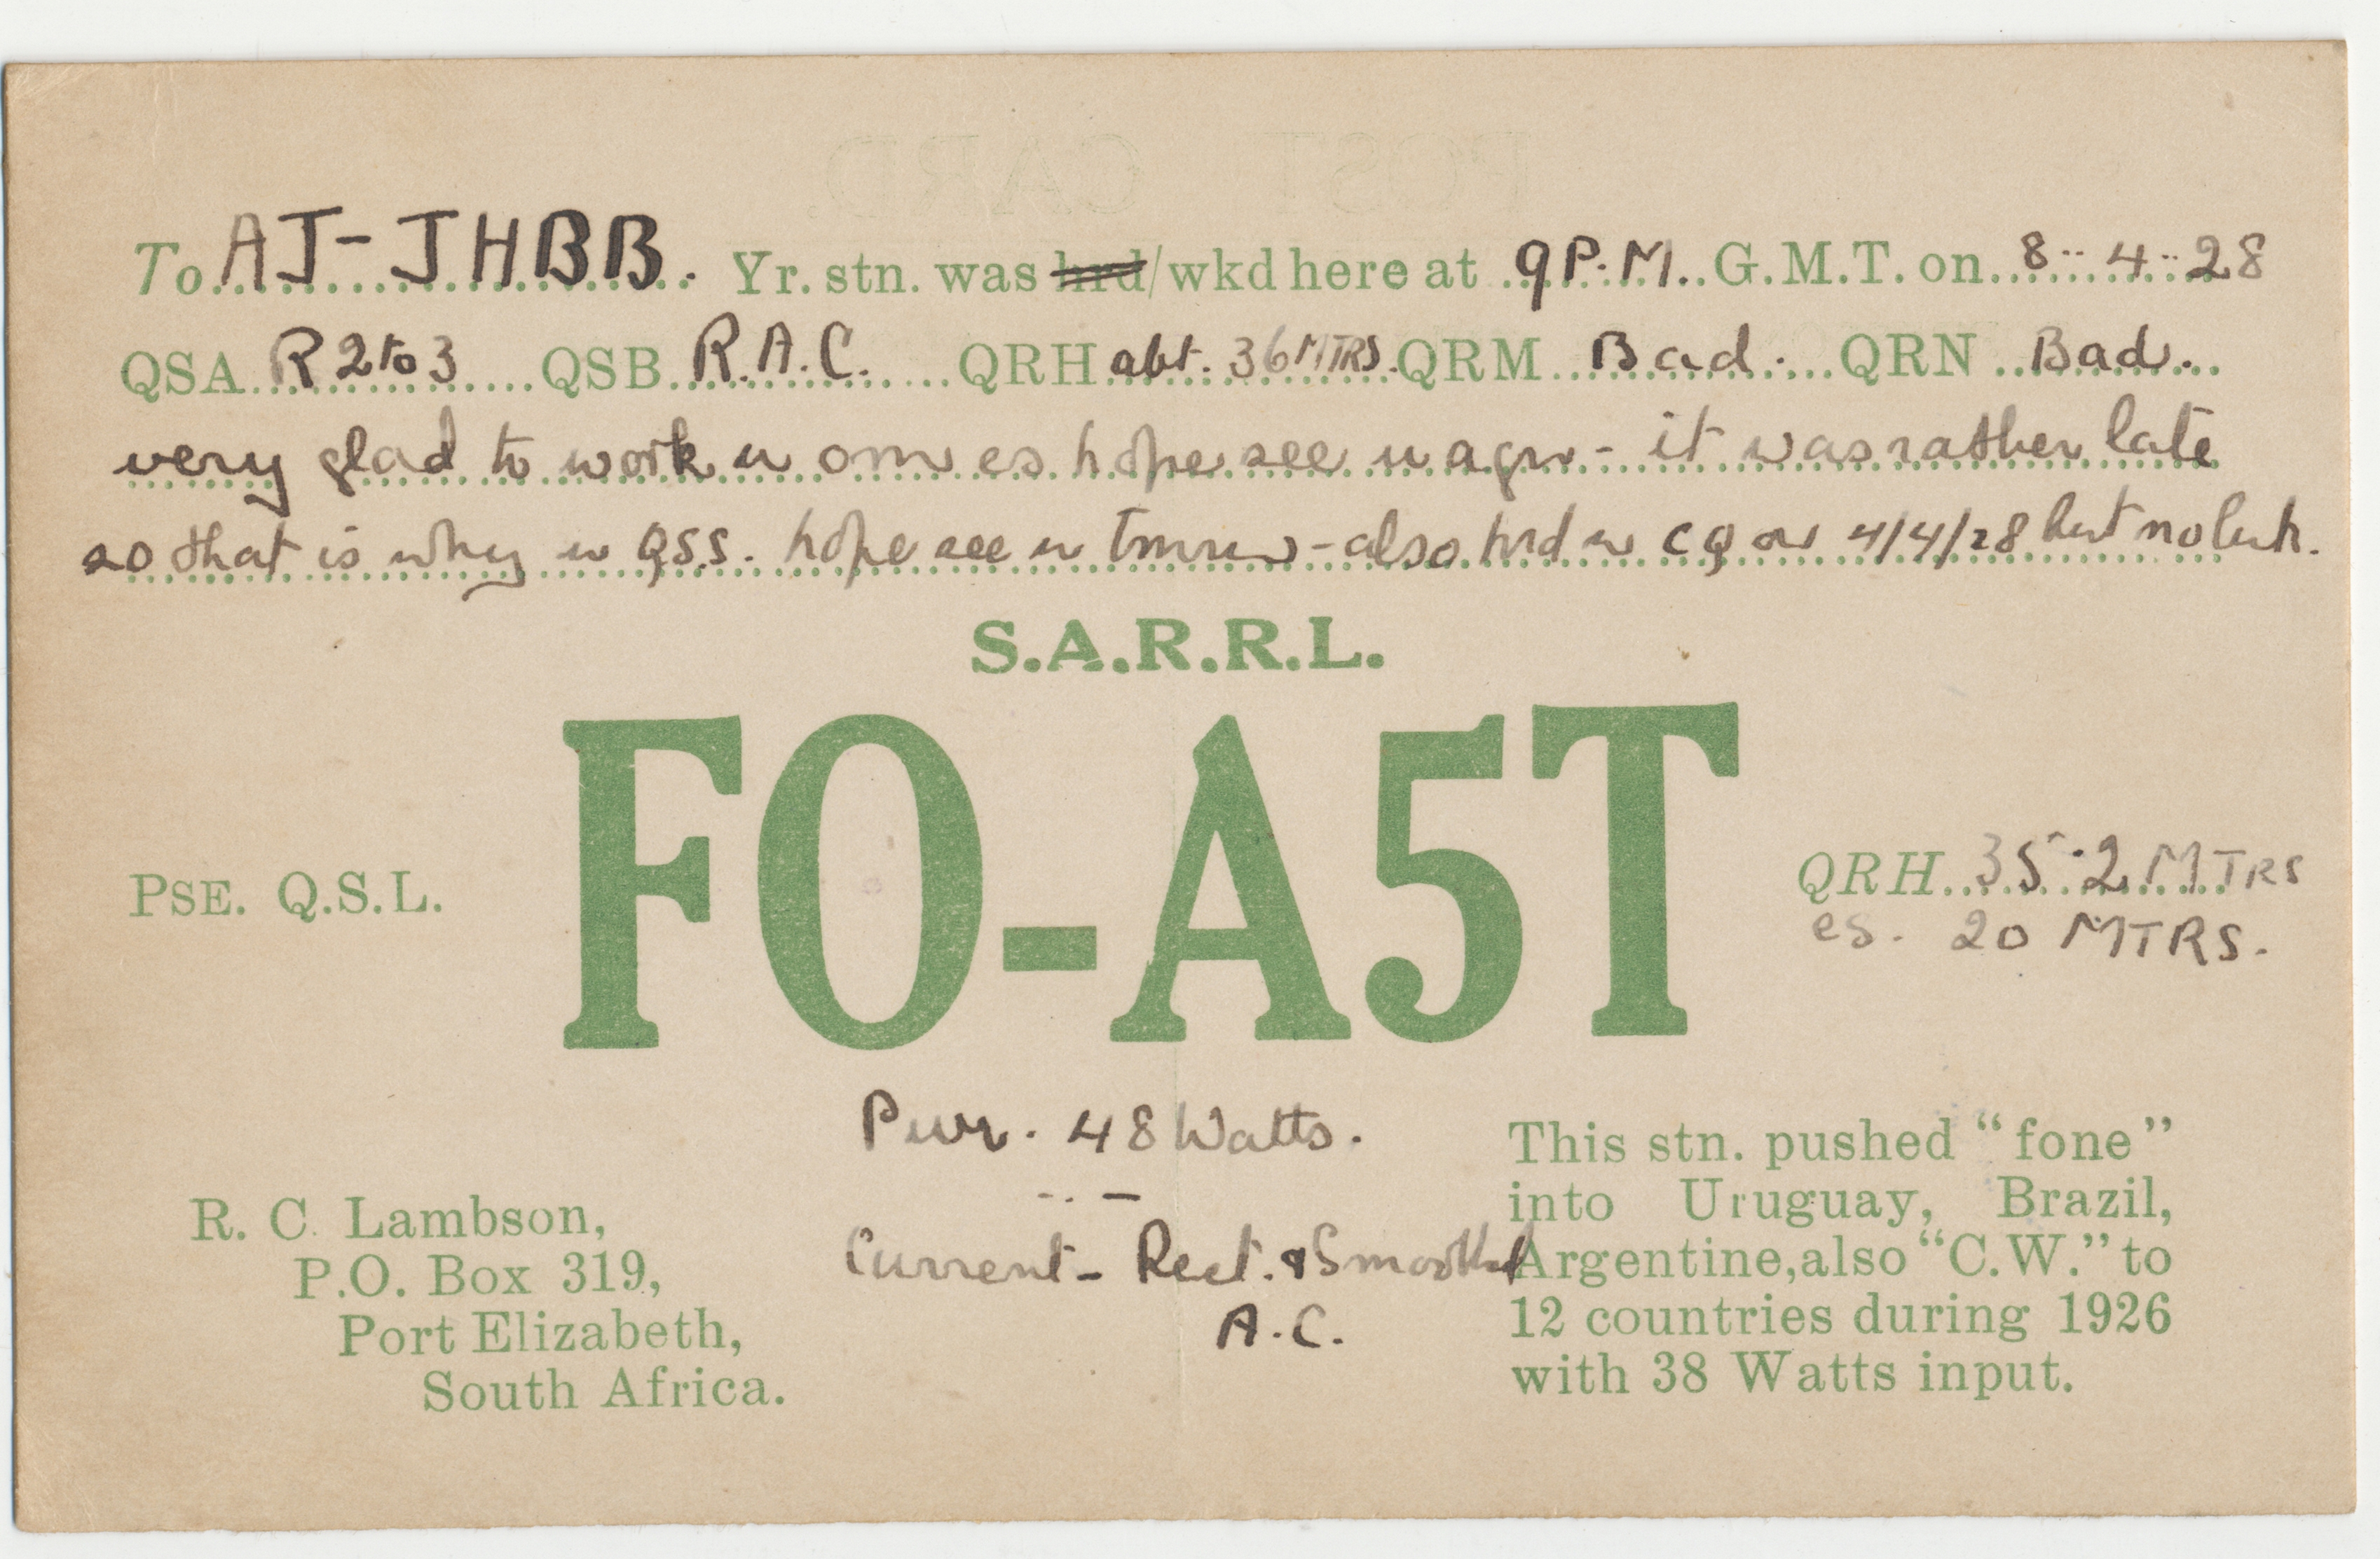 To AJ-JHBB. Yr. stn. was hrd/wkd here at 9 P.M. G.M.T. on 8-4-28
QSA R 2 to 3 QSB R.A.C. QRH abt. 36 MTRS. QRM Bad. QRN Bad.
very glad to work u om es hope see u agn - it was rather late
so that is why u QSS. hope see u tmrw - also hrd u CQ on 4/4/28 but no luk.
S.A.R.R.L.
FO-A5T
PSE. Q.S.L.
QRH 35.2 MTRS
es. 20 MTRS.
Pwr. 48 Watts.
Current - Rect. & Smoothed
A.C.
R. C. Lambson,
P.O. Box 319,
Port Elizabeth,
South Africa.
This stn. pushed "fone"
into Uruguay, Brazil,
Argentine, also "C.W." to
12 countries during 1926
with 38 Watts input.
POST CARD